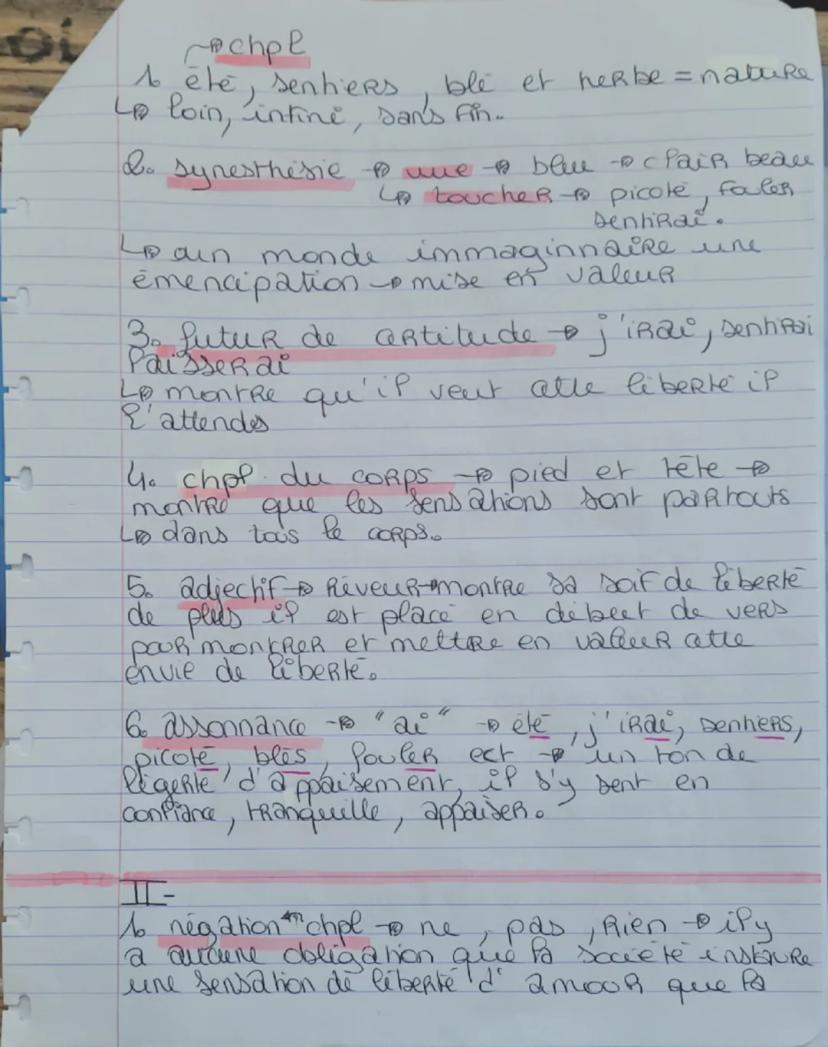 → chpl
1. été, sentiers, blé et herbe = nature
↳ loin, infini, sans fin.
2. synesthésie → vue → bleu → clair beau
↳ toucher → picoté, fouler
sentirai.
↳ un monde immaginnaire une
émencipation → mise en valeur
3. futur de certitude → j'irai, sentirai
laisserai
↳ montre qu'il veut cette liberté il
l'attends
4. chpl du corps → pied et tête →
montre que les sensations sont partouts
↳ dans tous le corps.
5. adjectif → Rêveur → montre sa soif de liberté
de plus il est placé en début de vers
pour montrer et mettre en valeur cette
envie de liberté.
6. assonnance → "ai" → été, j'irai, sentiers,
picoté, blés, fouler ect → un ton de
légerté, d'appaisement, il s'y sent en
confiance, tranquille, appaiser.
II-
1. négation chpl → ne, pas, rien → il y
a aucune obligation que la société instaure
une sensation de liberté d'amour que la